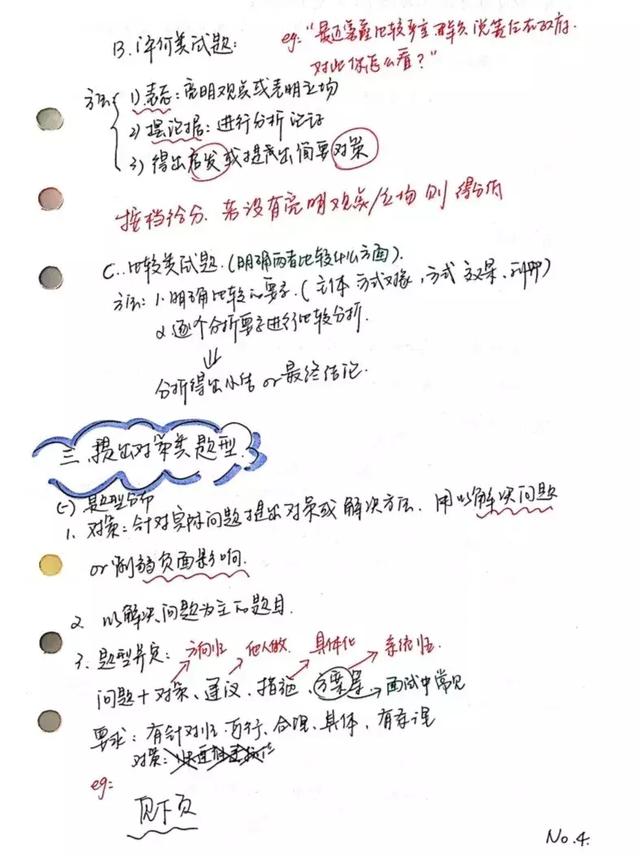 B. 评价类试题:
eg:"最近雾霾比较严重 群众说责任在政府.
对此你怎么看?"
方法
1) 表态: 亮明观点或表明立场
2) 摆论据: 进行分析论证
3) 得出启发或提出简要对策
按档给分. 若没有亮明观点/立场 则 得分低
C. 比较类试题.(明确两者比较什么方面).
方法: 1. 明确比较的要求.(主体 方式对象,方式 效果,利弊)
2. 逐个分析要求进行比较分析.
⇓
分析得出小结 or 最终结论.
三.提出对策类题型.
(一) 题型分布
1. 对策: 针对实际问题提出对策或 解决方法. 用以解决问题
or 削弱负面影响.
2. 以解决问题为主的题目.
3. 题型界定: 方向性 他人做. 具体化 系统性.
问题+对策、建议、措施、方案等→面试中常见
要求: 有针对性.可行、合理、具体、有条理
对策:
eg:
见下页
No.4.